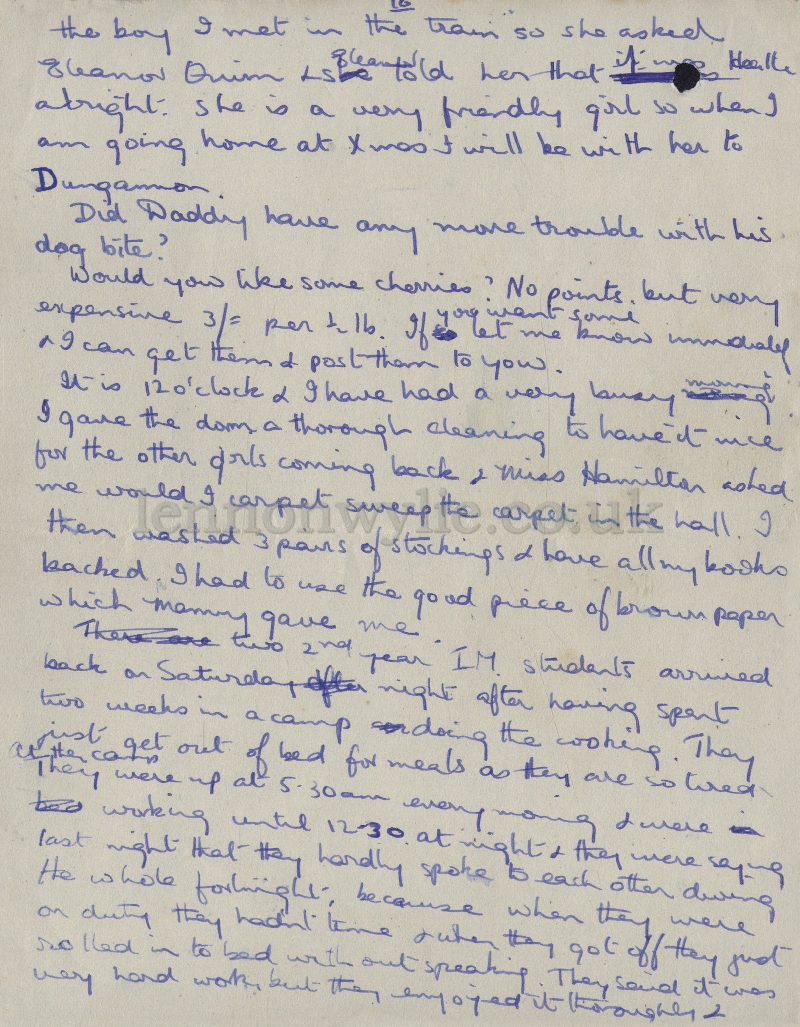 16
the boy I met in the train" so she asked
Eleanor Quinn & she Eleanor told her that it was Heatle
alright. She is a very friendly girl so when I
am going home at Xmas I will be with her to
Dungannon.
Did Daddy have any more trouble with his
dog bite?
Would you like some cherries? No points. but very
expensive 3/= per ½ lb. If you want some let me know immediately
& I can get them & post them to you.
It is 12 o'clock & I have had a very busy morning
I gave the dorm a thorough cleaning to have it nice
for the other girls coming back & Miss Hamilton asked
me would I carpet sweep the carpet in the hall. I
then washed 3 pairs of stockings & have all my books
backed. I had to use the good piece of brown paper
which Mammy gave me
There are two 2nd year I.M. students arrived
back on Saturday after night after having spent
two weeks in a camp doing the cooking. They
just get out of bed for meals as they are so tired
At the camp
They were up at 5.30am every moring & were
working until 12-30. at night & they were saying
last night that they hardly spoke to each other during
the whole fortnight, because when they were
on duty they hadn't time & when they got off they just
rolled in to bed with out speaking. They said it was
very hard work, but they enjoyed it thoroughly &
lennonwylie.co.uk